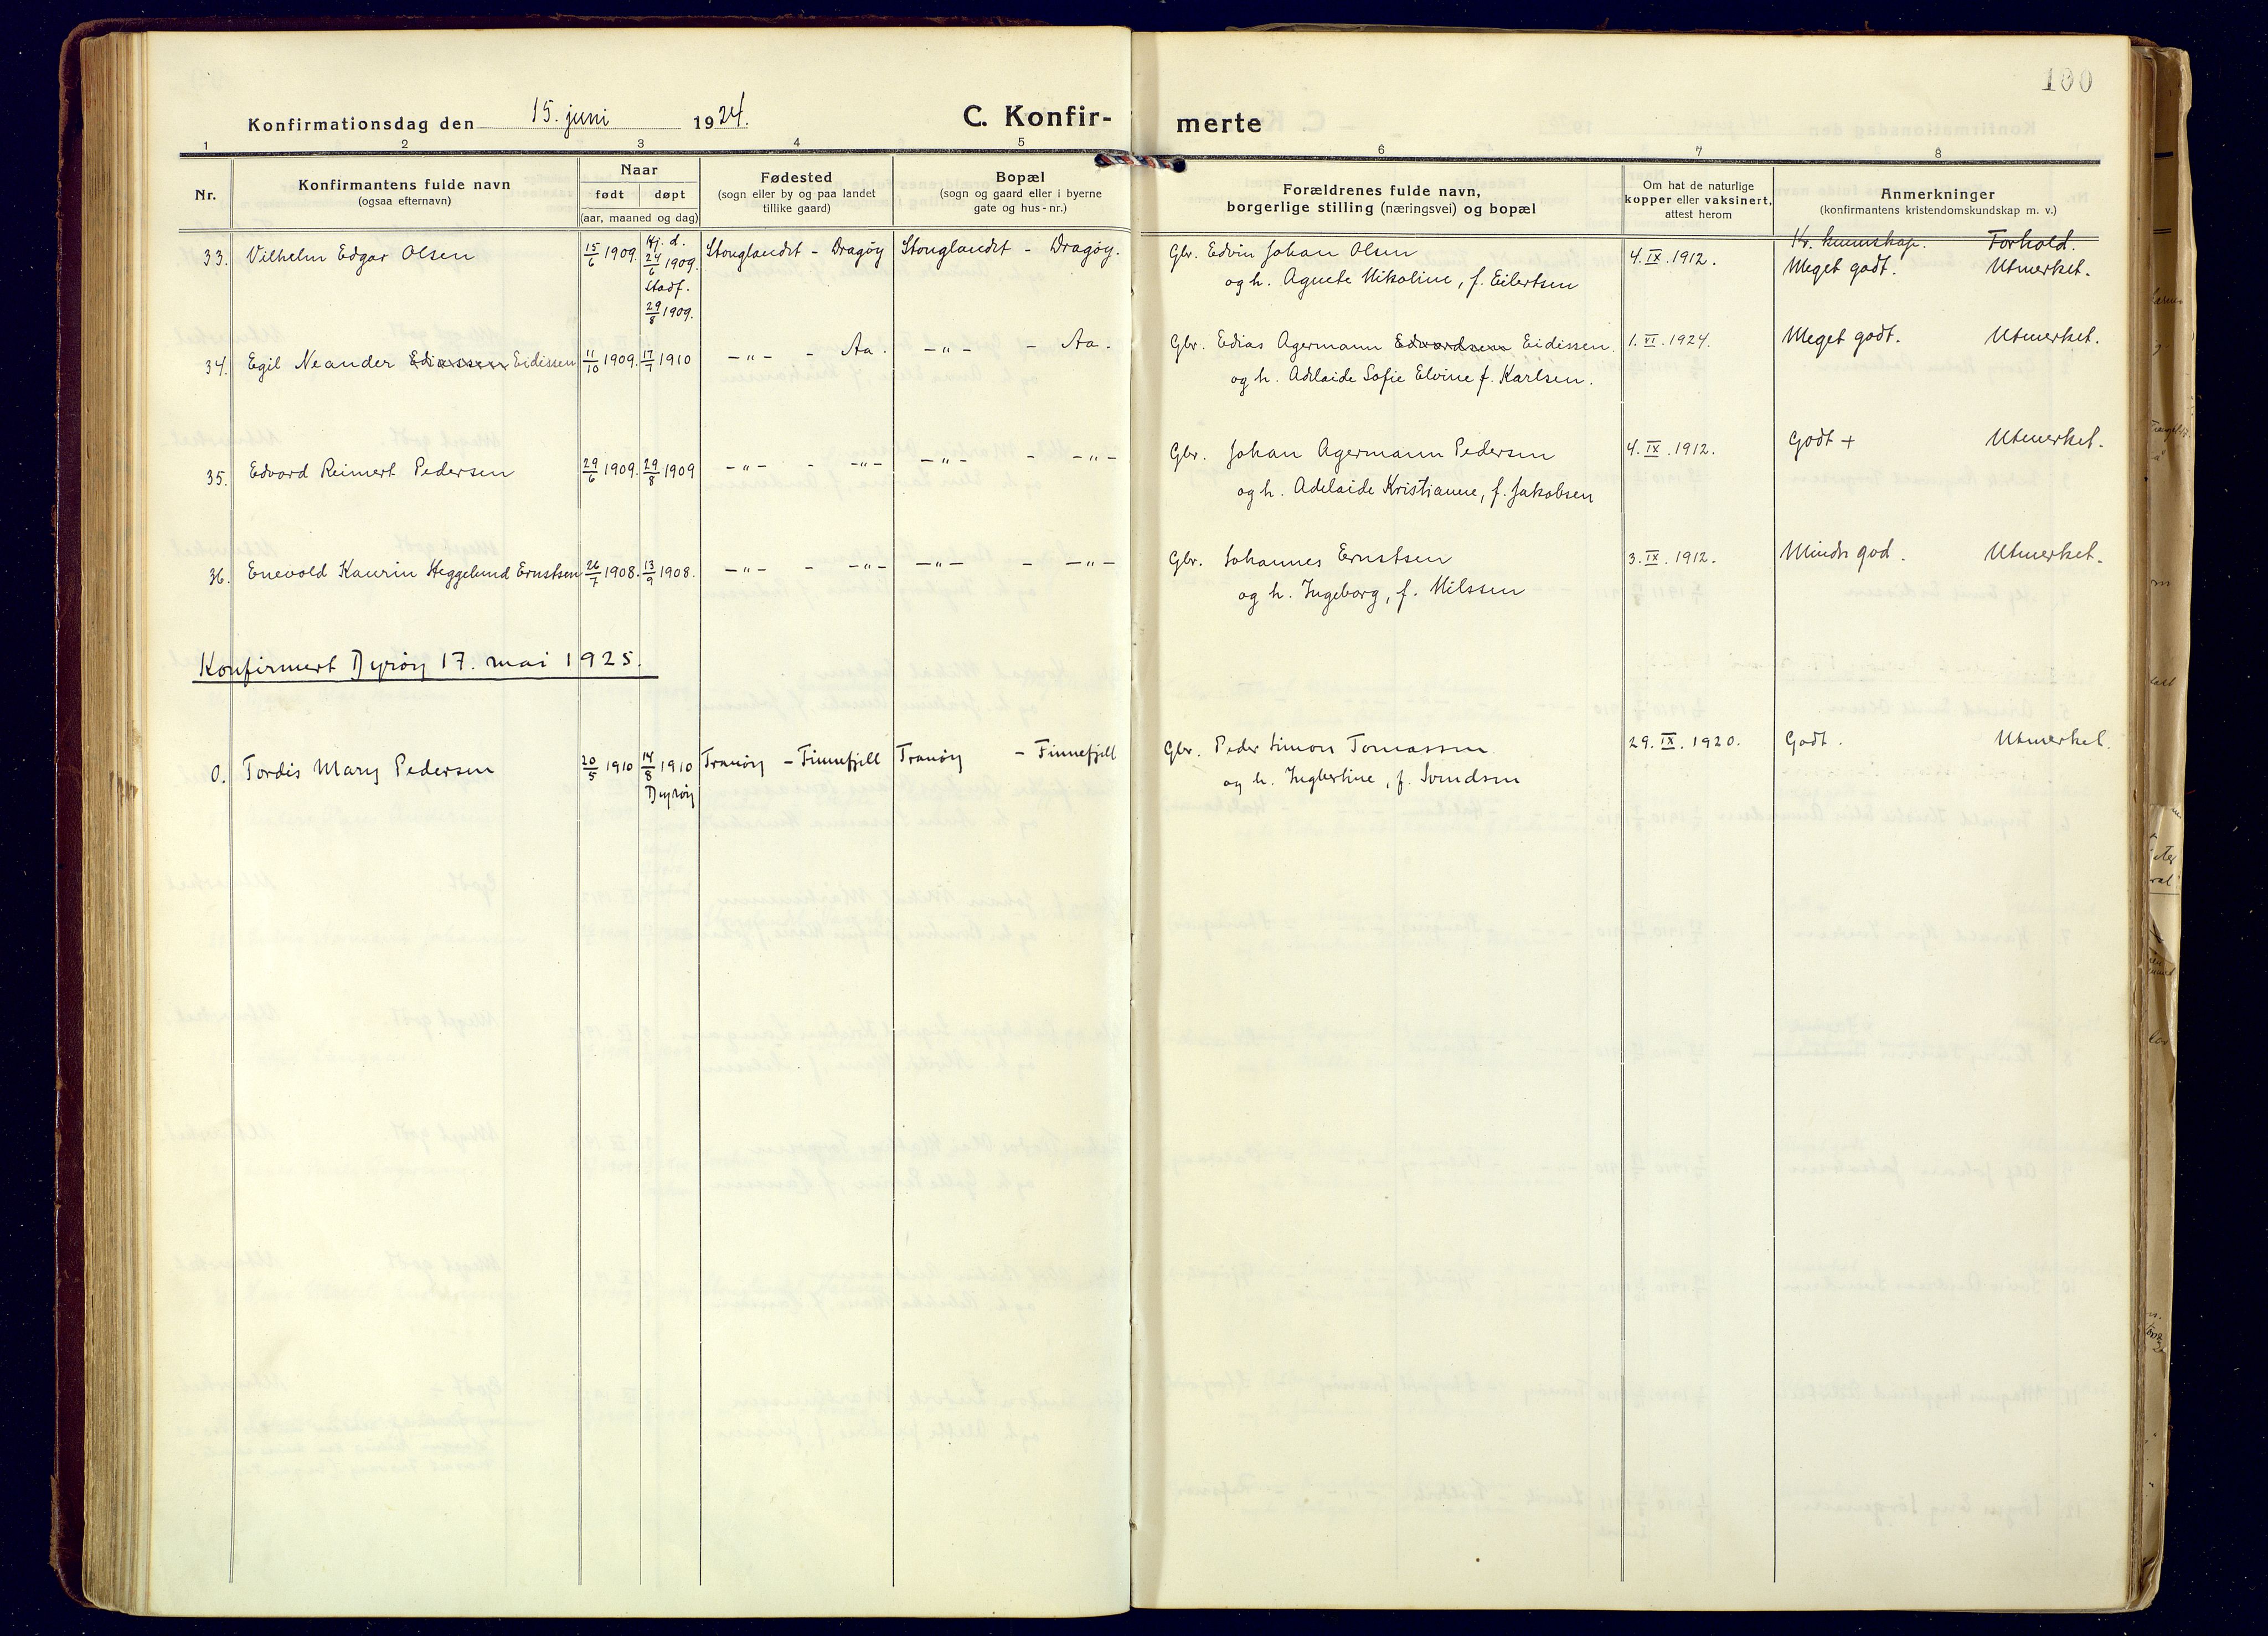 100
Konfirmationsdag den 15. juni 1924. C. Konfir- merte
1 2 3 4 5 6 7 8
Nr.
Konfirmantens fulde navn
(ogsaa efternavn)
Naar
født døpt
(aar, maaned og dag)
Fødested
(sogn eller by og paa landet
tillike gaard)
Bopæl
(sogn og gaard eller i byerne
gate og hus-nr.)
Forældrenes fulde navn,
borgerlige stilling (næringsvei) og bopæl
Om hat de naturlige
kopper eller vaksinert,
attest herom
Anmerkninger
(konfirmantens kristendomskundskap m. v.)
Kr. kunnskap. Forhold.
33. Vilhelm Edgar Olsen 15/6 1909. Hj. d. 24/6 1909. Stadf. 29/8 1909. Stonglandet - Dragøy Stonglandet - Dragøy. Gbr. Edvin Johan Olsen 4. IX. 1912. Meget godt. Utmerket.
og h. Agnete Nikoline, f. Eilertsen
34. Egil Neander Ediassen Eidissen 11/10 1909. 17/7 1910 -"- - Aa. -"- - Aa. Gbr. Edias Agermann Edvardsen Eidissen. 1. VI. 1924. Meget godt. Utmerket.
og h. Adelaide Sofie Elvine f. Karlsen.
35. Edvard Reimert Pedersen 29/6 1909. 29/8 1909 -"- - -"- -"- - -"- Gbr. Johan Agermann Pedersen 4. IX. 1912. Godt + Utmerket.
og h. Adelaide Kristianne, f. Jakobsen
36. Enevold Kaurin Heggelund Ernstsen 26/7 1908. 13/9 1908. -"- - -"- -"- - -"- Gbr. Johannes Ernstsen 3. IX. 1912. Mindre god. Utmerket.
og h. Ingeborg, f. Nilssen
Konfirmert Dyrøy 17. mai 1925.
0. Tordis Mary Pedersen 20/5 1910 14/8 1910 Dyrøy Tranøy - Finnefjell Tranøy - Finnefjell Gbr. Peder Simon Tomassen 29. IX. 1920. Godt. Utmerket.
og h. Ingbertine, f. Svendsen